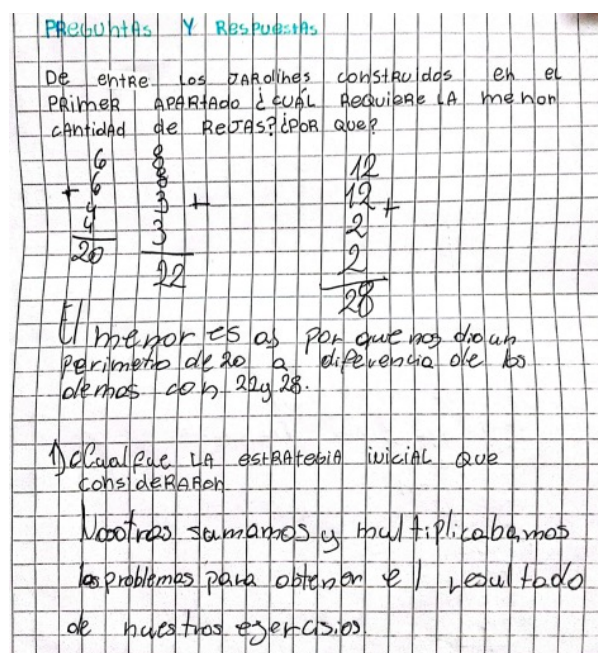 PREGUNTAS Y RESPUESTAS
De entre los JARDINES construidos en el
PRIMER APARTADO ¿CUÁL REQUIERE LA menor
CANTIDAD de REJAS? ¿POR que?
6
+ 6
4
4
20
8
8
3 +
3
22
12
12 +
2
2
28
El menor es a) por que nos dio un
perimetro de 20 a diferencia de los
demos con 22 y 28.
1) ¿Cual fue LA estRAtegiA iniciAL que
consideRARon
Nosotros sumamos y multiplicabamos
los problemas para obtener el resultado
de nuestros ejercisios.